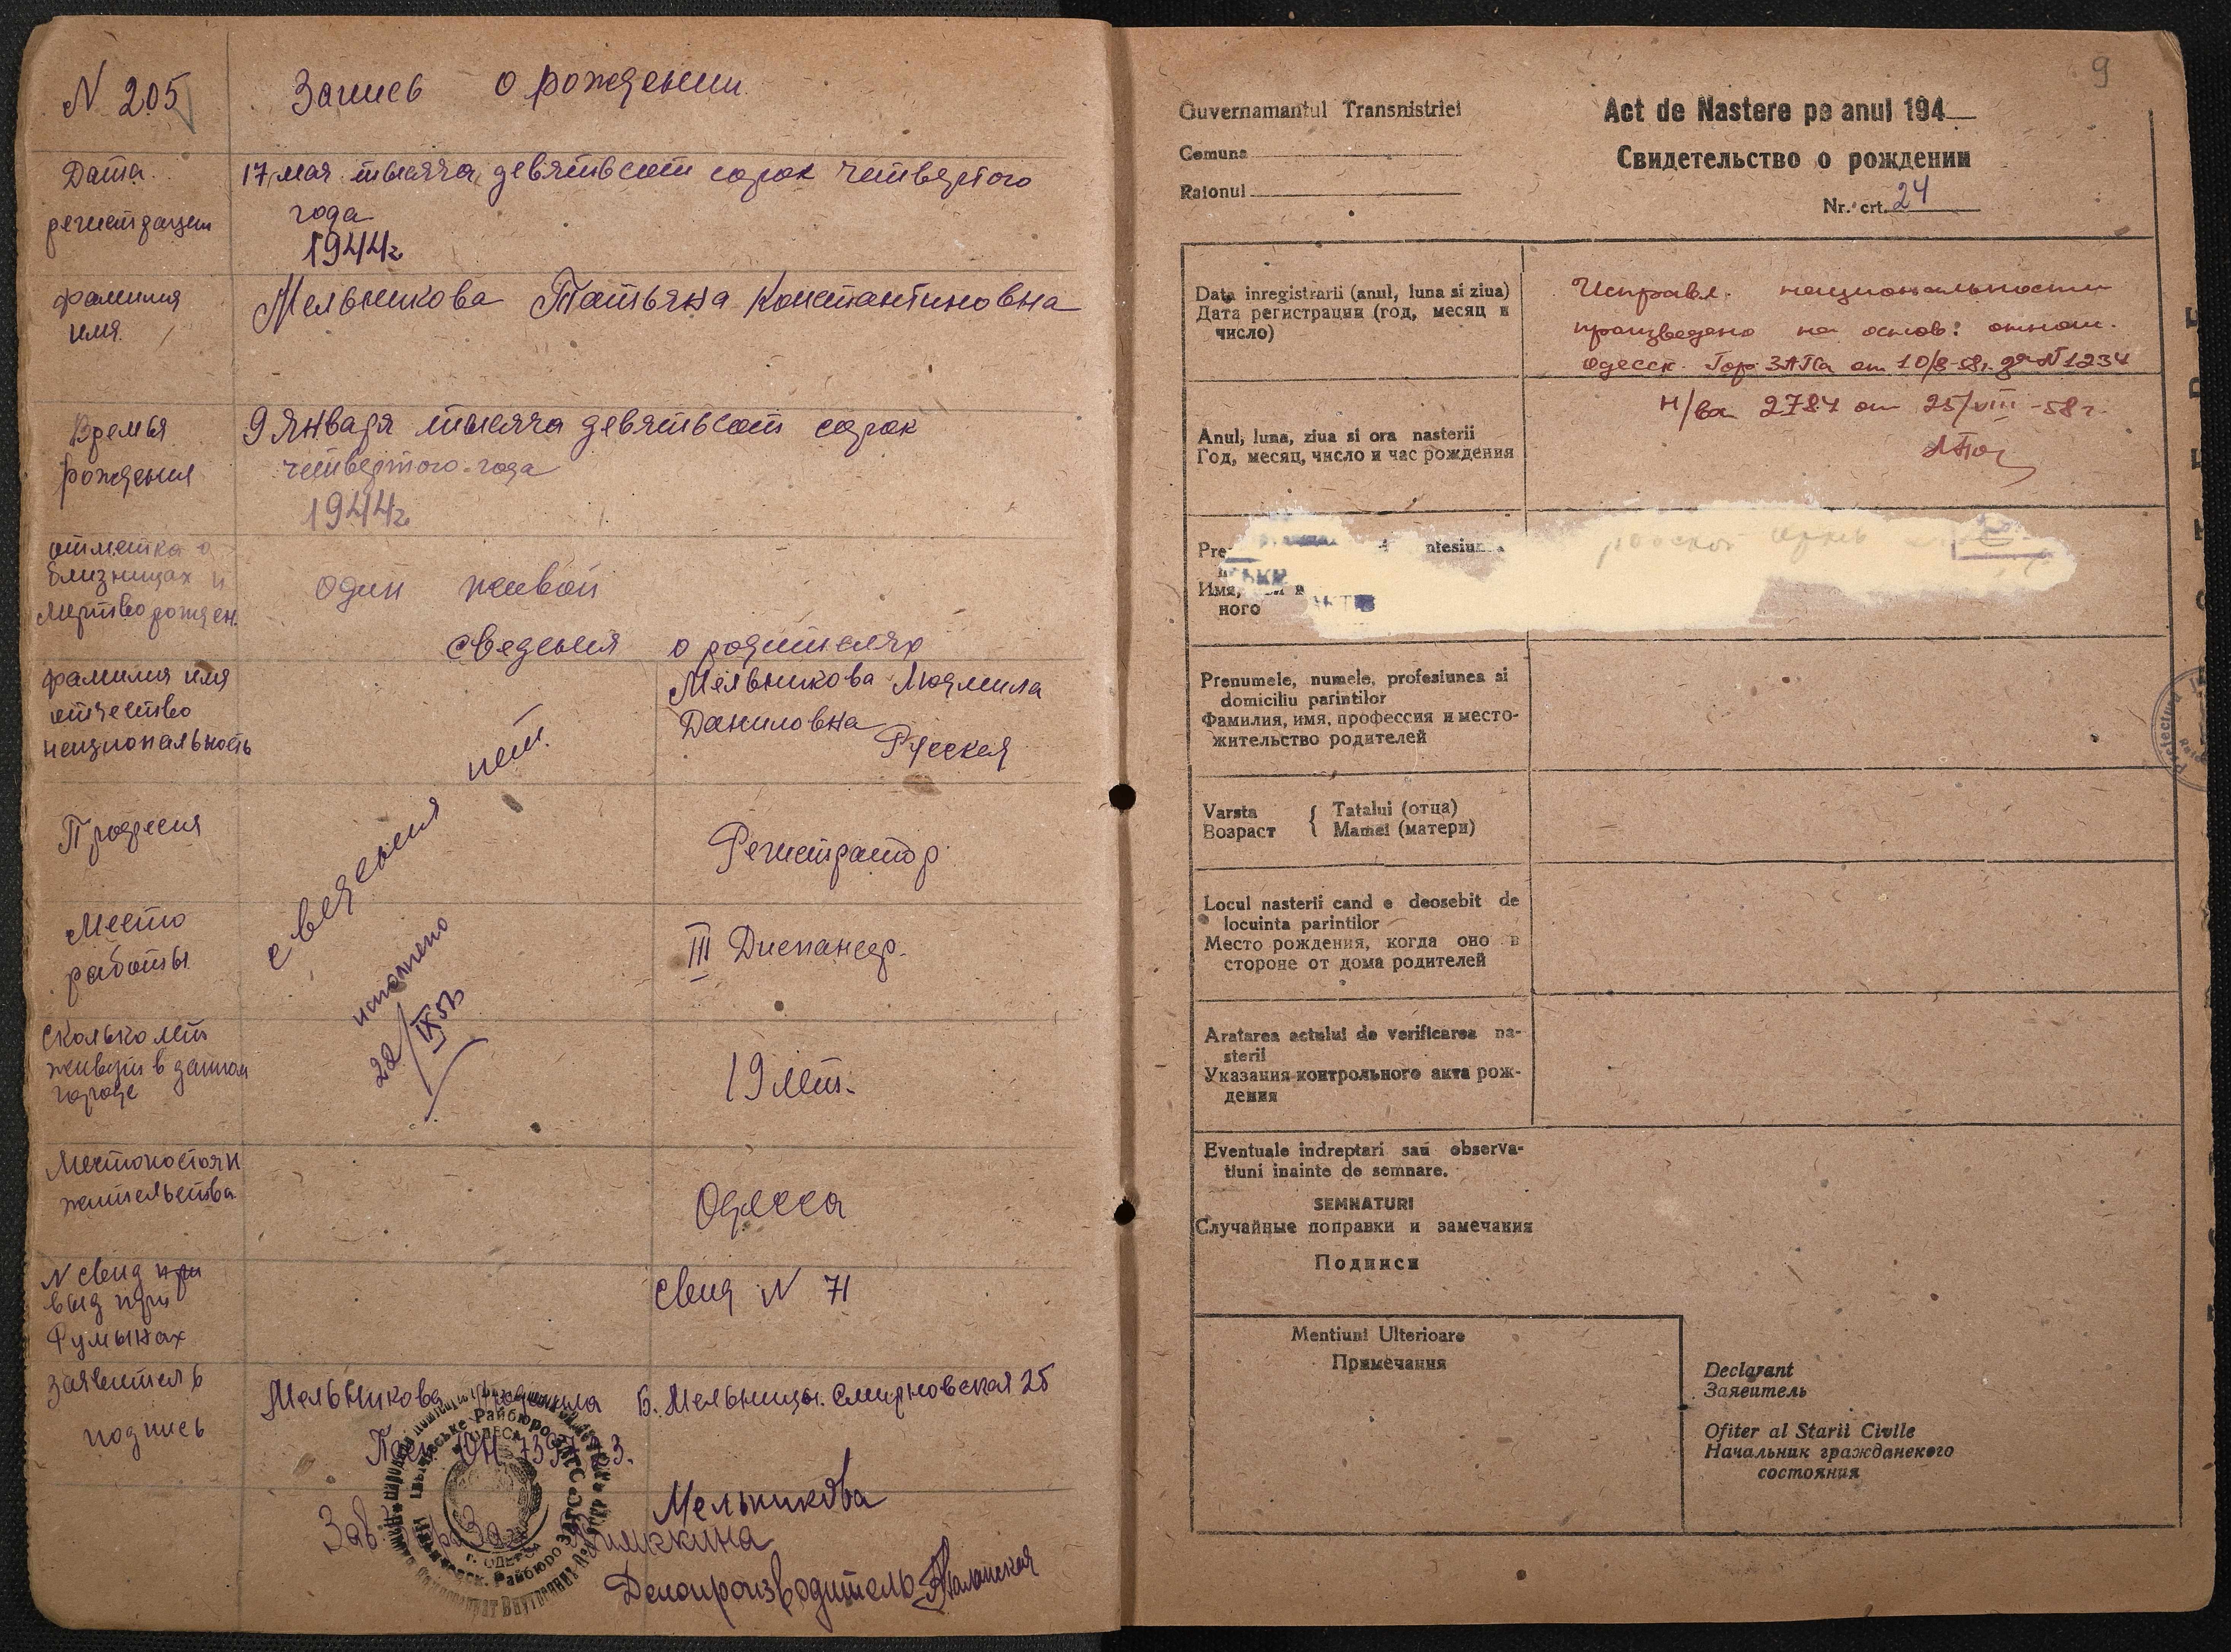 N 205 Запись о рождении
Дата регистрации
17 мая тысяча девятьсот сорок четвертого
года
1944г
фамилия имя
Мельникова Татьяна Константиновна
Времья рождения
9 января тысяча девятьсот сорок
четвертого года
1944г
отметка о близницах и мертворожден.
один живой
сведения о родителях
фамилия имя отчество национальность
сведения нет.
Мельникова Людмила
Даниловна
Русская
Професия
Регистратор
Место работы
III Диспансер.
исполнено
22/IX
сколько лет живети в данном городе
19 лет.
Местопостоян жительства
Одесса
N свид при выд при Румынах
свид N 71
Заявитель
Мельникова Людмила Б. Мельницы. Смирновская 25
подпись
Мельникова
Зав
Делопроизводитель
Райбюро ЗАГС
г. Одесса
9
Guvernamantul Transnistriei
Comuna
Raionul
Act de Nastere pe anul 194
Свидетельство о рождении
Nr. crt. 24
Data inregistrarii (anul, luna si ziua)
Дата регистрации (год, месяц и
число)
Исправл. национальности
произведено на основ: отнош.
Одесск. Гор ЗАГСа от 10/8-58г. за N 1234
Н/вх 2784 от 25/VIII-58г.
Anul, luna, ziua si ora nasterii
Год, месяц, число и час рождения
Pre
Имя,
ного
Prenumele, numele, profesiunea si
domiciliu parintilor
Фамилия, имя, профессия и место-
жительство родителей
Varsta { Tatalui (отца)
Возраст { Mamei (матери)
Locul nasterii cand e deosebit de
locuinta parintilor
Место рождения, когда оно в
стороне от дома родителей
Aratarea actului de verificarea na-
sterii
Указания контрольного акта рож-
дения
Eventuale indreptari sau observa-
tiuni inainte de semnare.
SEMNATURI
Случайные поправки и замечания
Подписи
Mentiuni Ulterioare
Примечания
Declarant
Заявитель
Ofiter al Starii Civile
Начальник гражданского
состояния